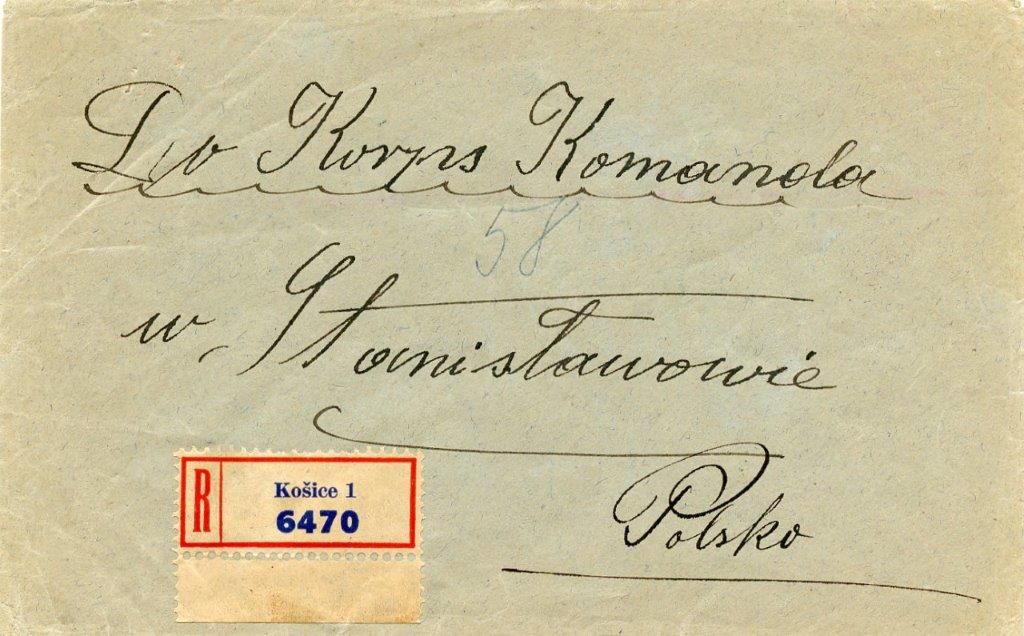 Do Korps Komanda
58
w Stanisławowie
R
Košice 1
6470
Polsko